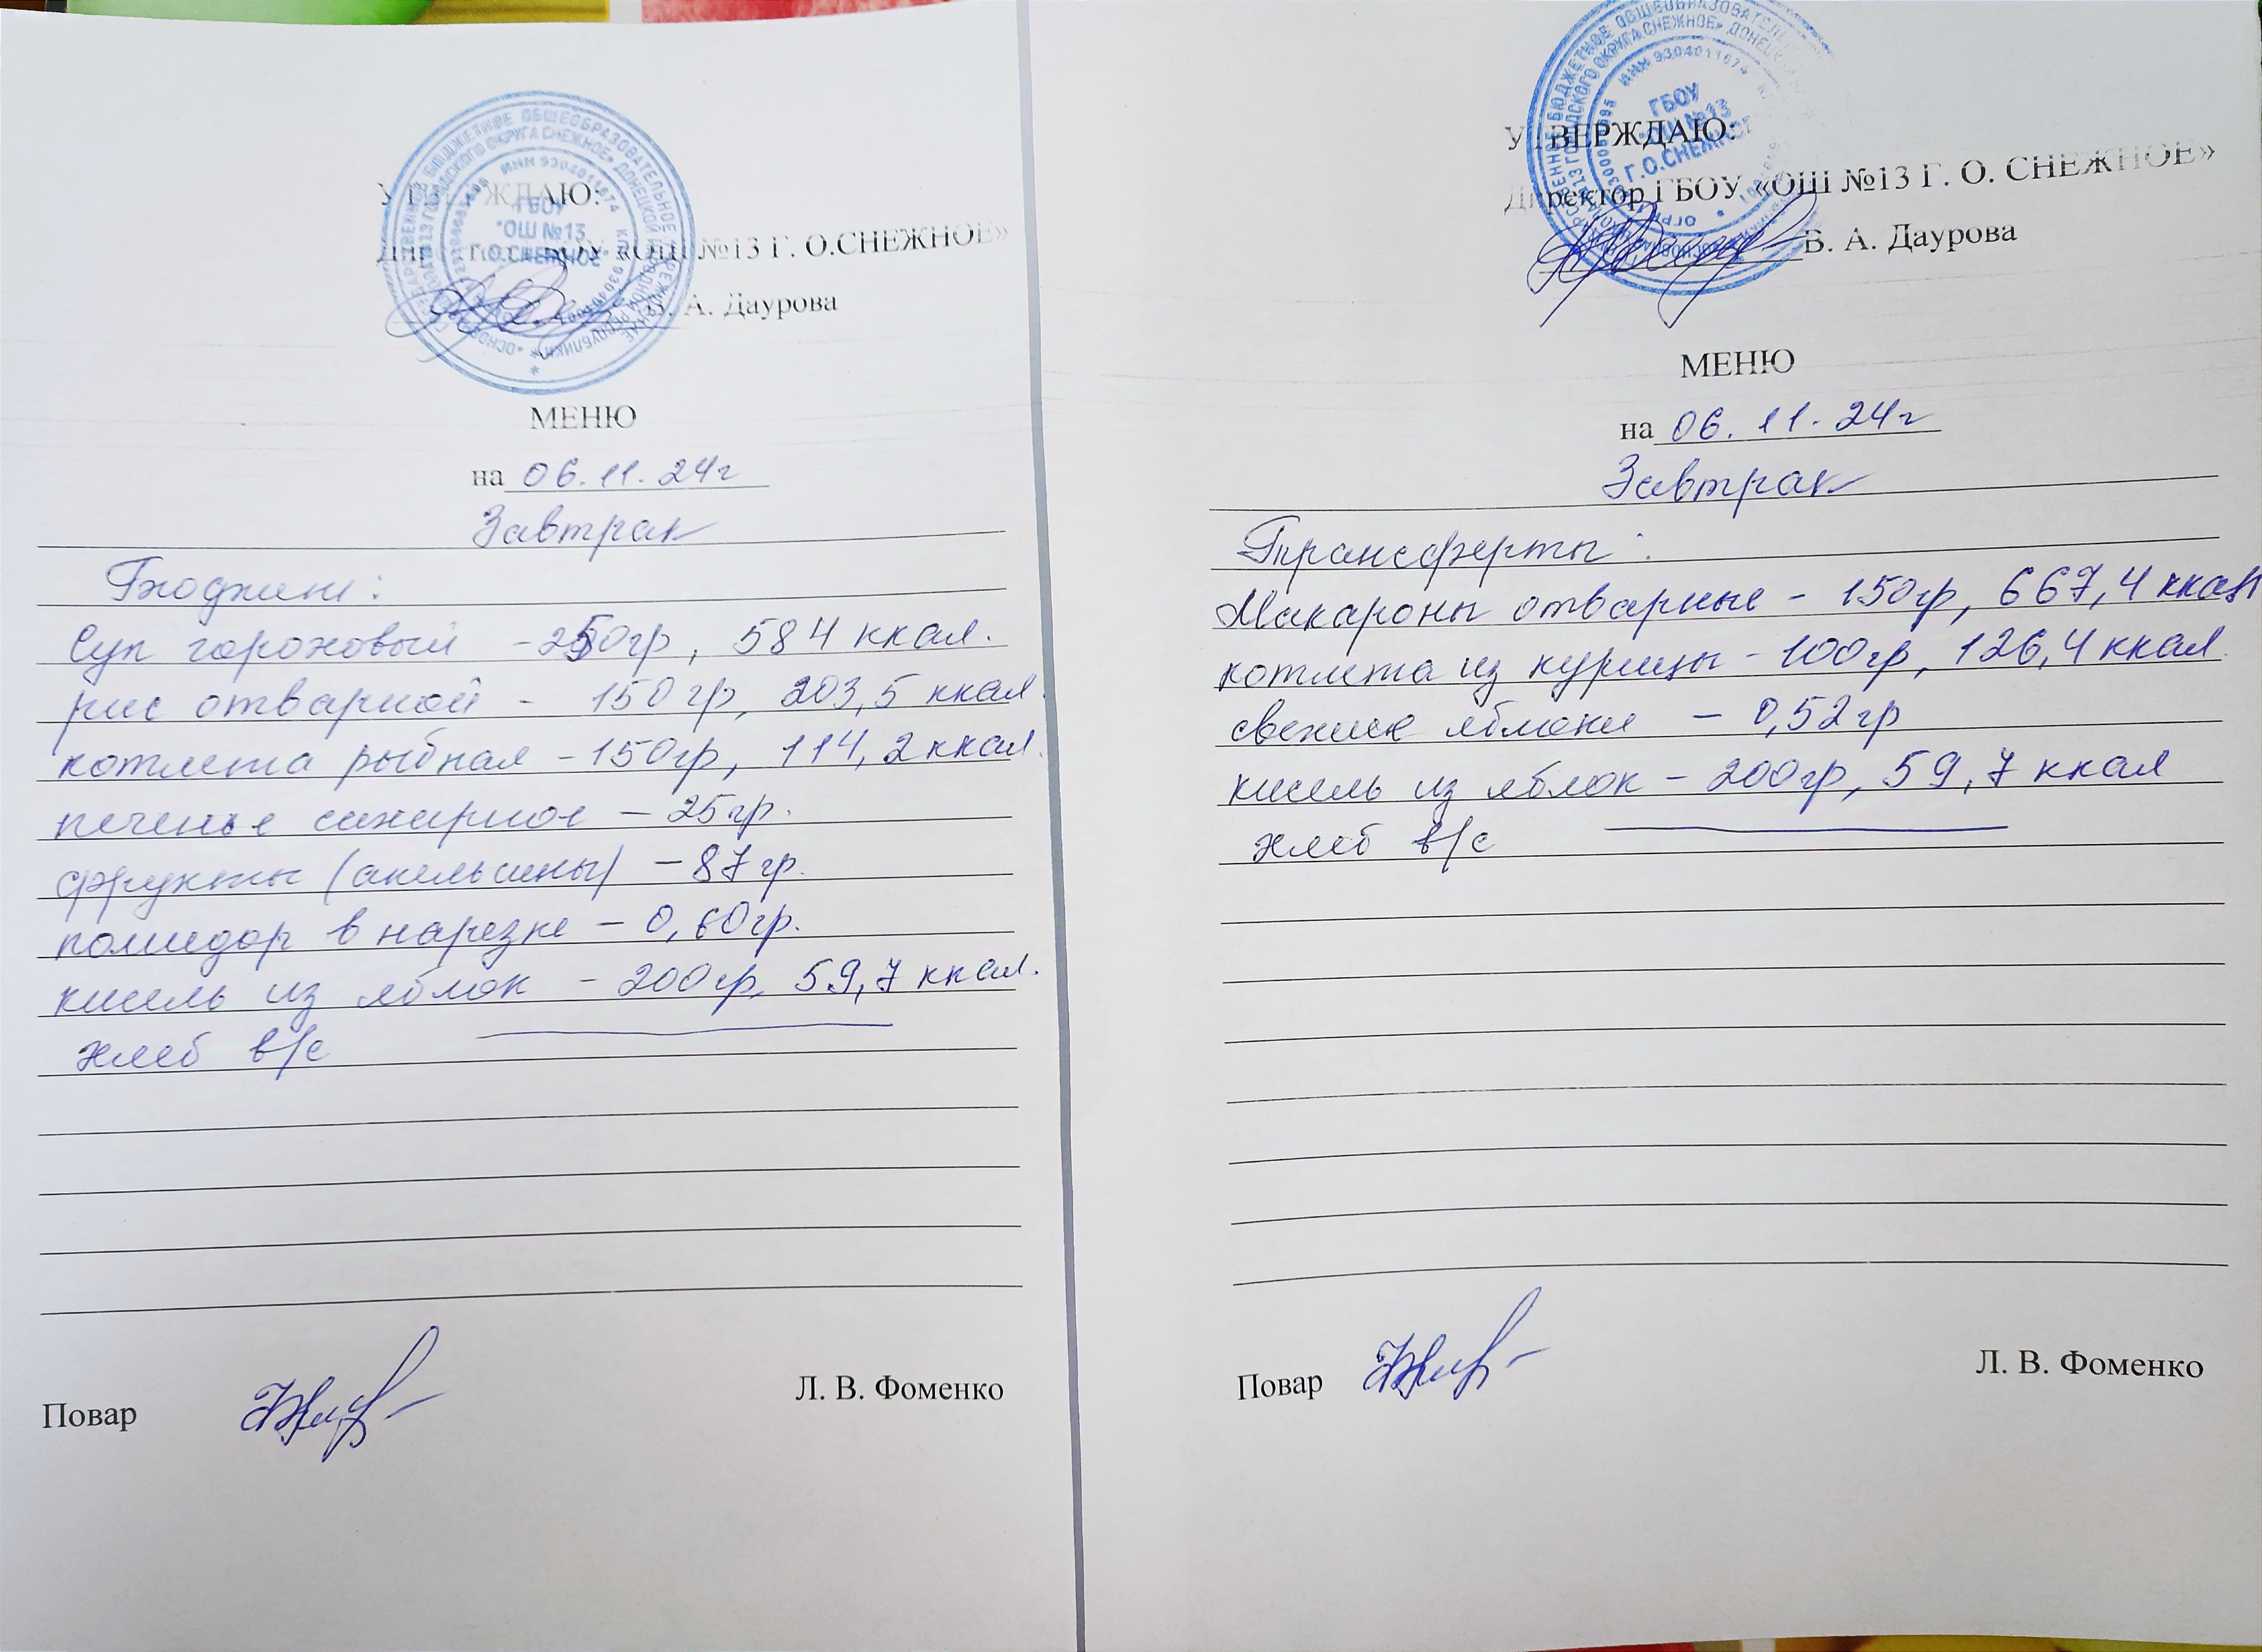 УТВЕРЖДАЮ:
Директор ГБОУ «ОШ №13 Г. О.СНЕЖНОЕ»
В. А. Даурова
ГБОУ
"ОШ №13
Г.О.СНЕЖНОЕ"
ИНН 9304011674
МЕНЮ
на 06.11.24г
Завтрак
Бюджет:
Суп гороховый - 250гр, 584 ккал.
рис отварной - 150 гр, 203,5 ккал.
котлета рыбная - 150гр, 114,2 ккал.
печенье сахарное - 25гр.
фрукты (апельсины) - 87 гр.
помидор в нарезке - 0,60гр.
кисель из яблок - 200 гр, 59,7 ккал.
хлеб в/с
Повар
Л. В. Фоменко
УТВЕРЖДАЮ:
Директор ГБОУ «ОШ №13 Г. О. СНЕЖНОЕ»
В. А. Даурова
ГБОУ
Г.О.СНЕЖНОЕ
ИНН 9304011674
МЕНЮ
на 06. 11. 24г
Завтрак
Трансферты:
Макароны отварные - 150гр, 667,4 ккал
котлета из курицы - 100гр, 126,4 ккал.
свежие яблоки - 0,52гр
кисель из яблок - 200гр, 59,7 ккал
хлеб в/с
Повар
Л. В. Фоменко